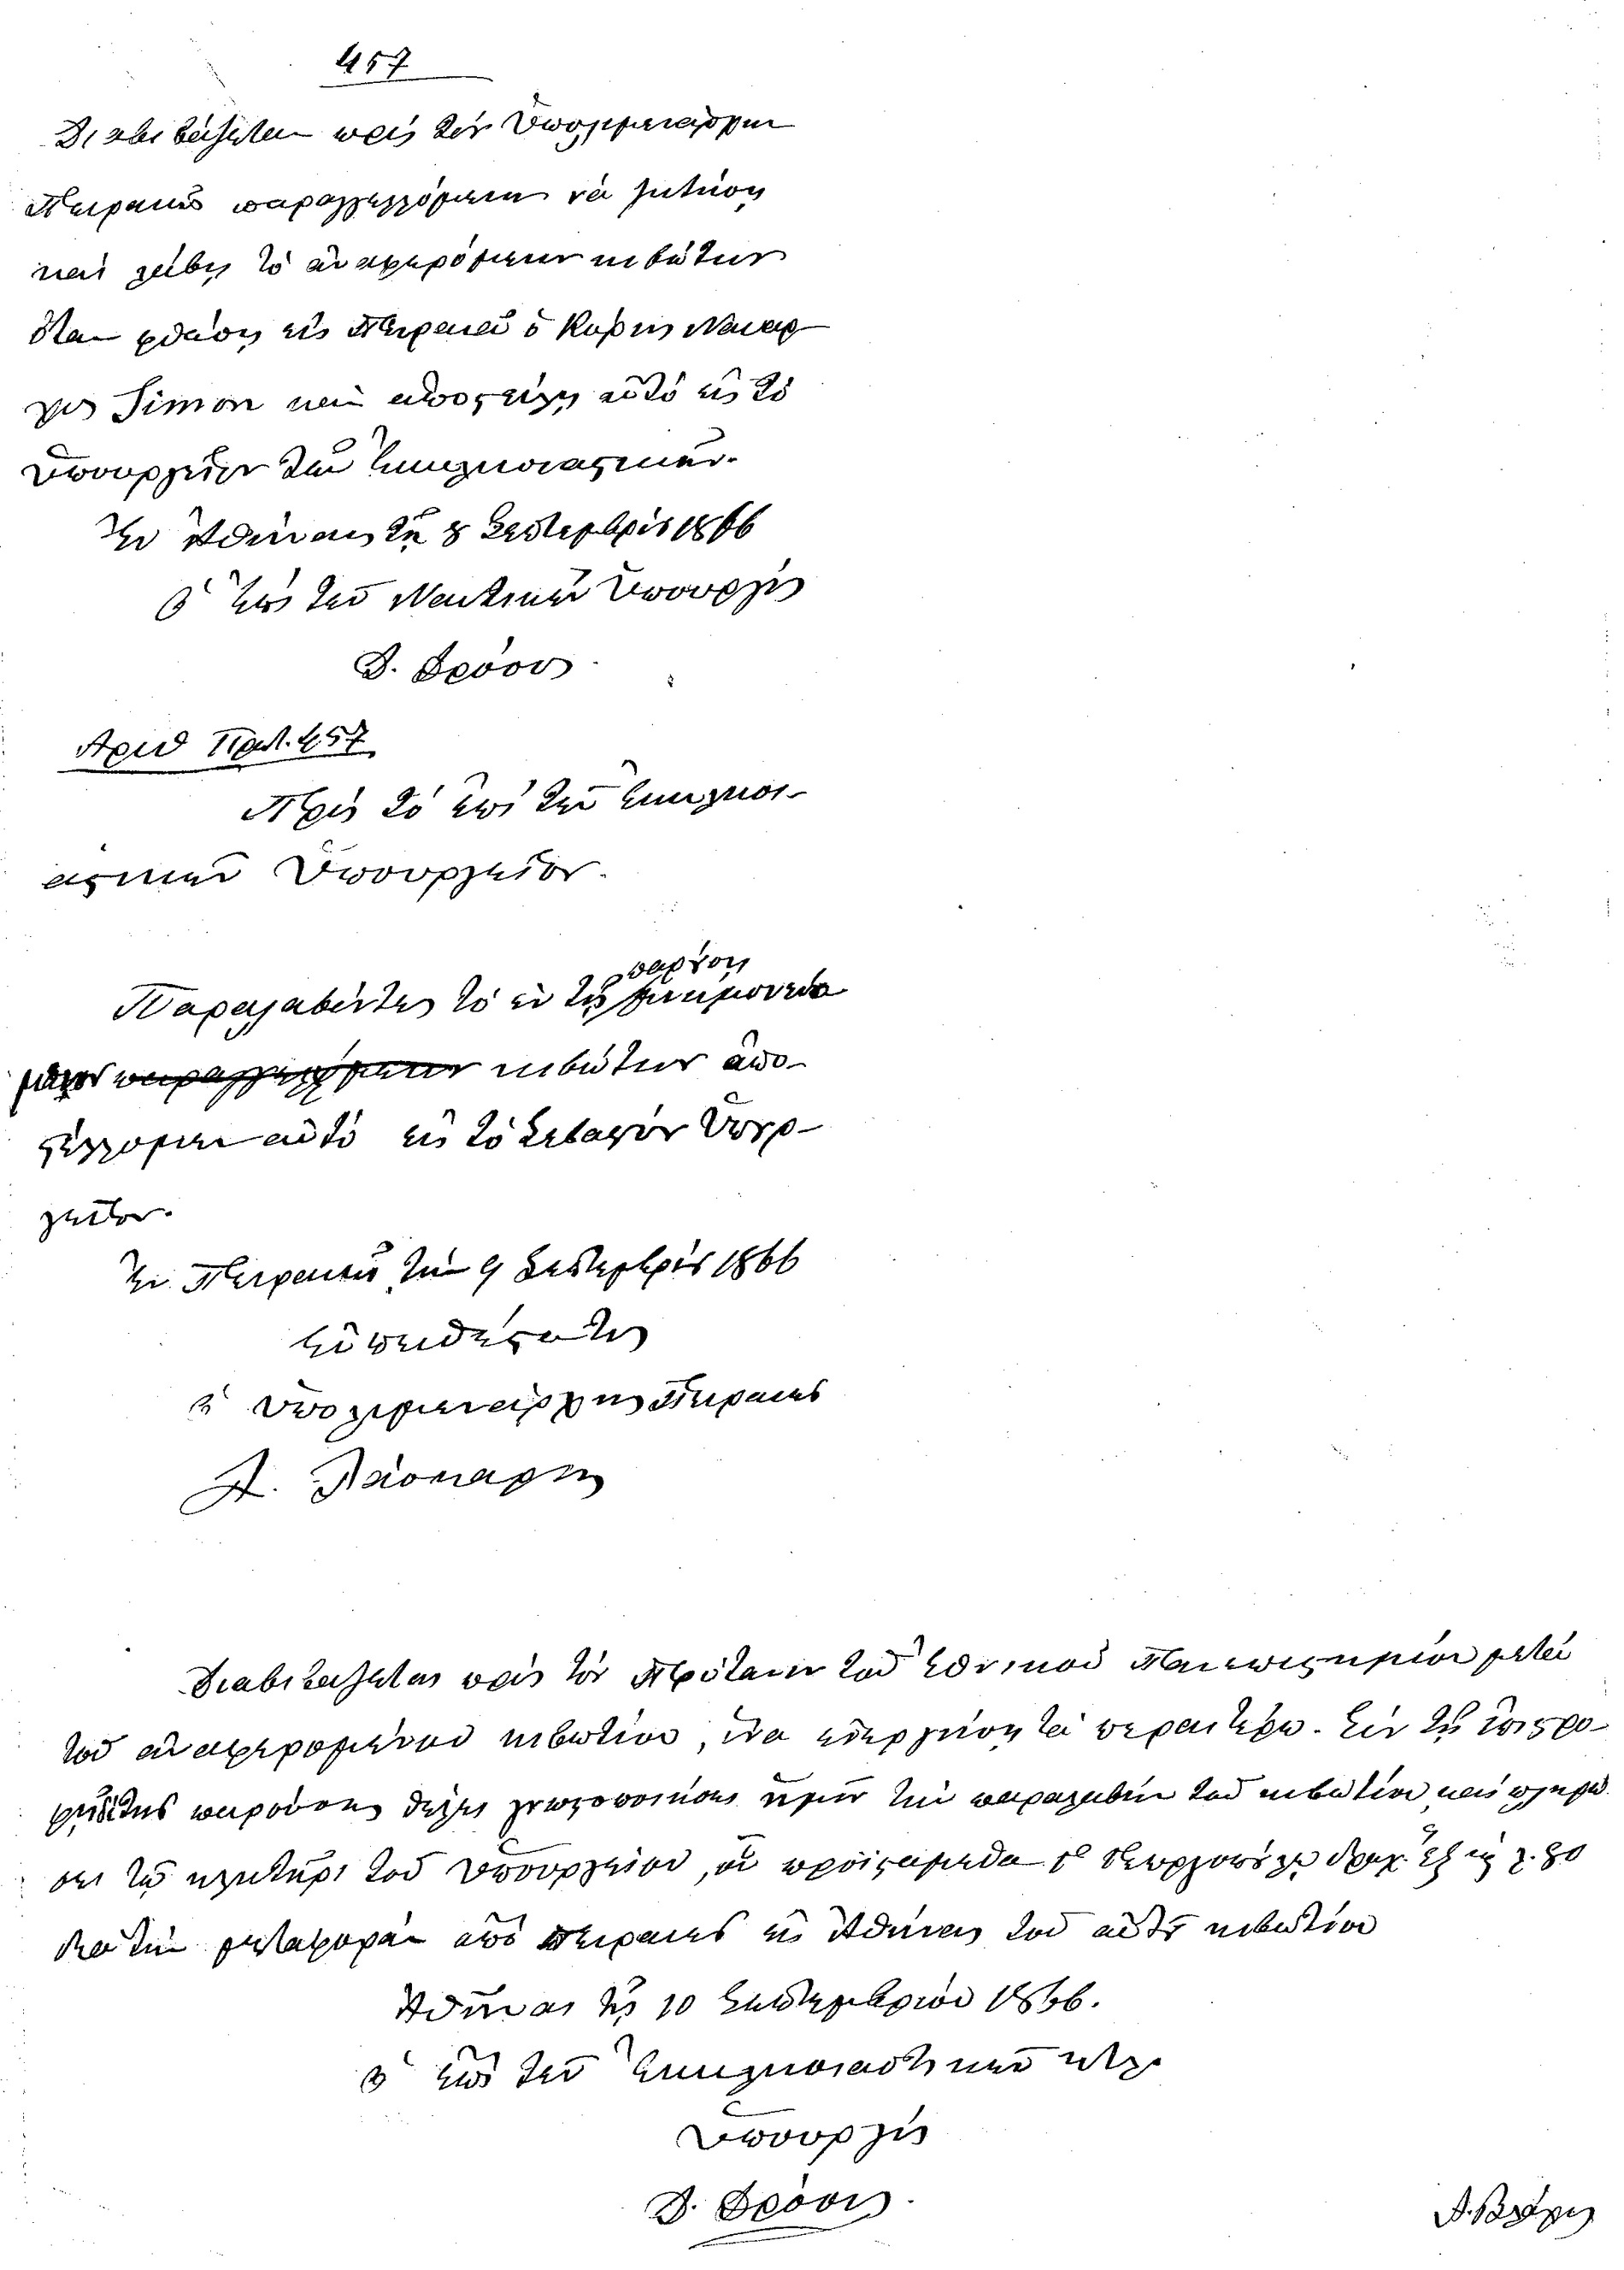 457
Διαβιβάζεται πρὸς τὸν Ὑπολιμενάρχην
Πειραιῶς παραγγελλόμενον νὰ ζητήσῃ
καὶ λάβῃ τὸ ἀναφερόμενον κιβώτιον
ὅταν φθάσῃ εἰς Πειραιᾶ ὁ Κύριος Ναύαρ
χος Simon καὶ ἀποστείλῃ αὐτὸ εἰς τὸ
Ὑπουργεῖον τῶν Ἐκκλησιαστικῶν.
Ἐν Ἀθήναις τῇ 8 Σεπτεμβρίου 1866
Ὁ ἐπὶ τῶν Ναυτικῶν Ὑπουργὸς
Δ. Δρόσος
Ἀριθ Πρωτ. 457
Πρὸς τὸ ἐπὶ τῶν Ἐκκλησι-
αστικῶν Ὑπουργεῖον.
παρούσῃ
Παραλαβόντες τὸ ἐν τῇ
κιβώτιον ἀπο-
στέλλομεν αὐτὸ εἰς τὸ Σεβαστὸν Ὑπουρ-
γεῖον.
Ἐν Πειραιεῖ τὴν 9 Σεπτεμβρίου 1866
Εὐπειθέστατος
ὁ Ὑπολιμενάρχης Πειραιῶς
Διαβιβάζεται πρὸς τὸν Πρύτανιν τοῦ Ἐθνικοῦ Πανεπιστημίου μετὰ
τοῦ ἀναφερομένου κιβωτίου, ἵνα ἐνεργήσῃ τὰ περαιτέρω. Ἐν τῇ ἐπιστρο-
παρούσης θέλει γνωστοποιήσει ἡμῖν τὴν παραλαβὴν τοῦ κιβωτίου καὶ πληρώ
σει τῷ κλητῆρι τοῦ Ὑπουργείου, οὗ προΐσταμεθα
διὰ τὴν μεταφορὰν ἀπὸ Πειραιῶς εἰς Ἀθήνας τοῦ αὐτοῦ κιβωτίου
Ἀθῆναι τῇ 10 Σεπτεμβρίου 1866.
Ὁ ἐπὶ τῶν Ἐκκλησιαστικῶν κτλ.
Ὑπουργὸς
Δ. Δρόσος.